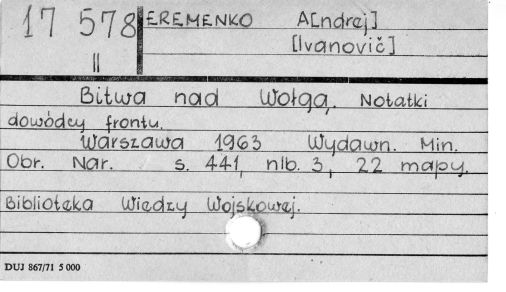 17 578 EREMENKO A[ndrej]
II [Ivanovič]
Bitwa nad Wołgą. Notatki
dowódcy frontu.
Warszawa 1963 Wydawn. Min.
Obr. Nar. s. 441, nlb. 3, 22 mapy.
Biblioteka Wiedzy Wojskowej.
DUJ 867/71 5 000